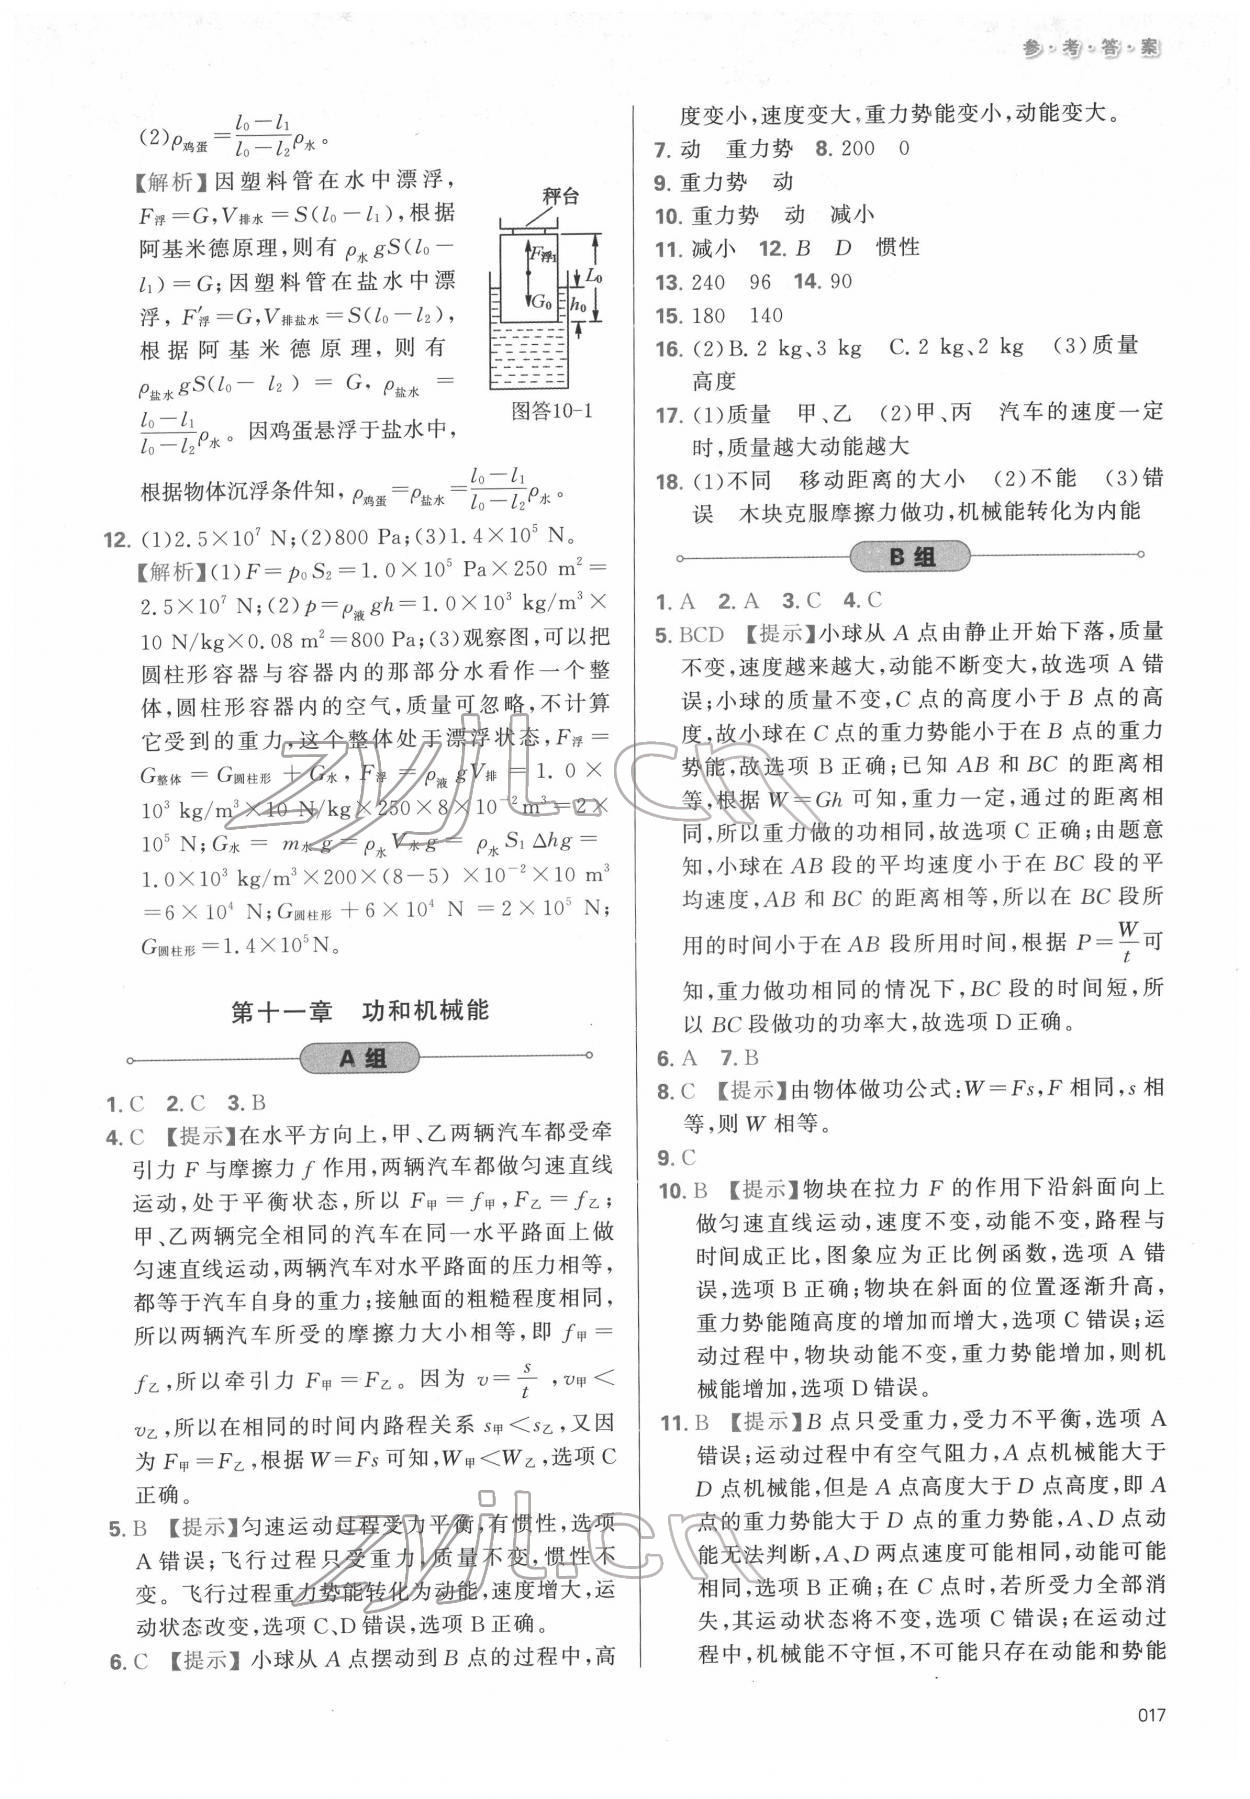 参·考·答·案
(2)ρ鸡蛋=(l₀-l₁)/(l₀-l₂)ρ水。
【解析】因塑料管在水中漂浮,
F浮=G,V排水=S(l₀-l₁),根据
阿基米德原理,则有 ρ水gS(l₀-
l₁)=G;因塑料管在盐水中漂
浮, F′浮=G,V排盐水=S(l₀-l₂),
根据阿基米德原理,则有
ρ盐水gS(l₀-l₂)=G, ρ盐水=
(l₀-l₁)/(l₀-l₂)ρ水。因鸡蛋悬浮于盐水中,
秤台
F浮1
G₀
L₀
h₀
图答10-1
根据物体沉浮条件知, ρ鸡蛋=ρ盐水=(l₀-l₁)/(l₀-l₂)ρ水。
12. (1)2.5×10⁷ N;(2)800 Pa;(3)1.4×10⁵ N。
【解析】(1)F=p₀S₂=1.0×10⁵ Pa×250 m²=
2.5×10⁷ N;(2)p=ρ液gh=1.0×10³ kg/m³×
10 N/kg×0.08 m²=800 Pa;(3)观察图,可以把
圆柱形容器与容器内的那部分水看作一个整
体,圆柱形容器内的空气,质量可忽略,不计算
它受到的重力,这个整体处于漂浮状态,F浮=
G整体=G圆柱形+G水, F浮=ρ液gV排=1.0×
10³ kg/m³×10 N/kg×250×8×10⁻²m³=2×
10⁵ N;G水= m水g=ρ水V水g= ρ水S₁Δhg=
1.0×10³ kg/m³×200×(8-5)×10⁻²×10 m³
=6×10⁴ N;G圆柱形+6×10⁴ N=2×10⁵ N;
G圆柱形=1.4×10⁵N。
第十一章 功和机械能
A组
1. C 2. C 3. B
4. C 【提示】在水平方向上,甲、乙两辆汽车都受牵
引力 F 与摩擦力 f 作用,两辆汽车都做匀速直线
运动,处于平衡状态,所以 F甲=f甲,F乙=f乙;
甲、乙两辆完全相同的汽车在同一水平路面上做
匀速直线运动,两辆汽车对水平路面的压力相等,
都等于汽车自身的重力;接触面的粗糙程度相同,
所以两辆汽车所受的摩擦力大小相等,即 f甲=
f乙,所以牵引力 F甲=F乙。因为 v=s/t,v甲<
v乙,所以在相同的时间内路程关系 s甲<s乙,又因
为 F甲=F乙,根据 W=Fs 可知,W甲<W乙,选项 C
正确。
5. B 【提示】匀速运动过程受力平衡,有惯性,选项
A 错误;飞行过程只受重力,质量不变,惯性不
变。飞行过程重力势能转化为动能,速度增大,运
动状态改变,选项 C、D 错误,选项 B 正确。
6. C 【提示】小球从 A 点摆动到 B 点的过程中,高
度变小,速度变大,重力势能变小,动能变大。
7. 动 重力势 8. 200 0
9. 重力势 动
10. 重力势 动 减小
11. 减小 12. B D 惯性
13. 240 96 14. 90
15. 180 140
16. (2)B. 2 kg、3 kg C. 2 kg、2 kg (3)质量
高度
17. (1)质量 甲、乙 (2)甲、丙 汽车的速度一定
时,质量越大动能越大
18. (1)不同 移动距离的大小 (2)不能 (3)错
误 木块克服摩擦力做功,机械能转化为内能
B组
1. A 2. A 3. C 4. C
5. BCD 【提示】小球从 A 点由静止开始下落,质量
不变,速度越来越大,动能不断变大,故选项 A 错
误;小球的质量不变,C 点的高度小于 B 点的高
度,故小球在 C 点的重力势能小于在 B 点的重力
势能,故选项 B 正确;已知 AB 和 BC 的距离相
等,根据 W=Gh 可知,重力一定,通过的距离相
同,所以重力做的功相同,故选项 C 正确;由题意
知,小球在 AB 段的平均速度小于在 BC 段的平
均速度,AB 和 BC 的距离相等,所以在 BC 段所
用的时间小于在 AB 段所用时间,根据 P=W/t可
知,重力做功相同的情况下,BC 段的时间短,所
以 BC 段做功的功率大,故选项 D 正确。
6. A 7. B
8. C 【提示】由物体做功公式:W=Fs,F 相同,s 相
等,则 W 相等。
9. C
10. B 【提示】物块在拉力 F 的作用下沿斜面向上
做匀速直线运动,速度不变,动能不变,路程与
时间成正比,图象应为正比例函数,选项 A 错
误,选项 B 正确;物块在斜面的位置逐渐升高,
重力势能随高度的增加而增大,选项 C 错误;运
动过程中,物块动能不变,重力势能增加,则机
械能增加,选项 D 错误。
11. B 【提示】B 点只受重力,受力不平衡,选项 A
错误;运动过程中有空气阻力,A 点机械能大于
D 点机械能,但是 A 点高度大于 D 点高度,即 A
点的重力势能大于 D 点的重力势能,A、D 点动
能无法判断,A、D 两点速度可能相同,动能可能
相同,选项 B 正确;在 C 点时,若所受力全部消
失,其运动状态将不变,选项 C 错误;在运动过
程中,机械能不守恒,不可能只存在动能和势能
017
zyjl.cn
zyjl.cn